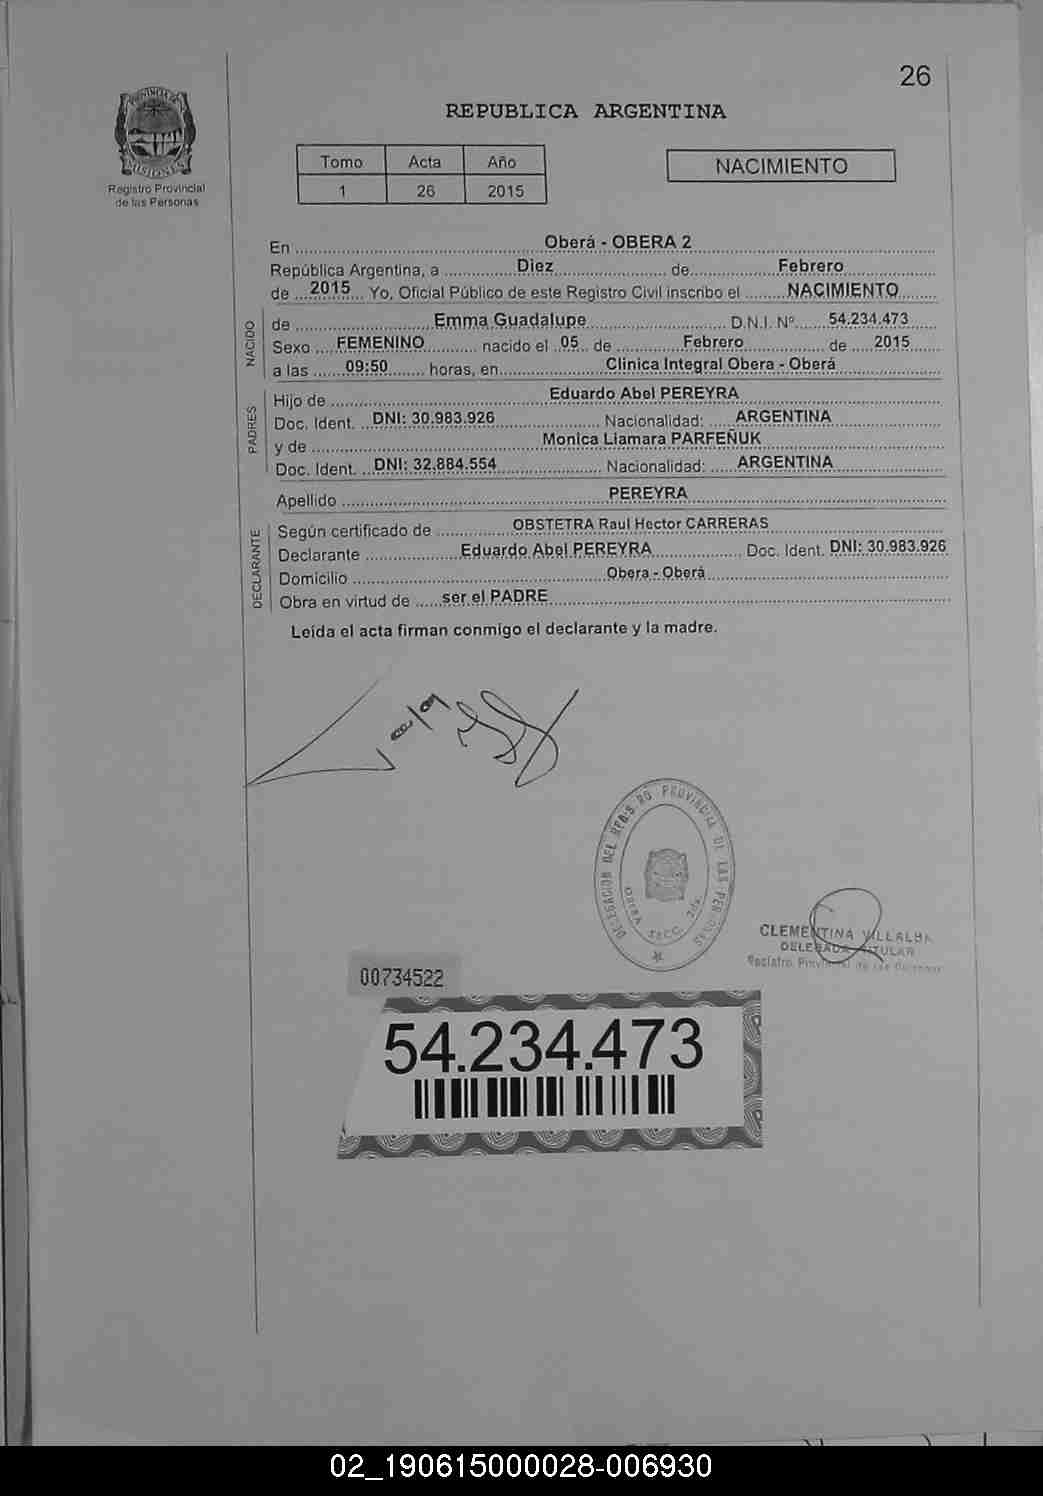 26
REPUBLICA ARGENTINA
PROVINCIA DE
MISIONES
Registro Provincial
de las Personas
Tomo Acta Año
1 26 2015
NACIMIENTO
En Oberá - OBERA 2
República Argentina, a Diez de Febrero
de 2015 Yo, Oficial Público de este Registro Civil inscribo el NACIMIENTO
NACIDO
de Emma Guadalupe D.N.I. Nº 54.234.473
Sexo FEMENINO nacido el 05 de Febrero de 2015
a las 09:50 horas, en Clínica Integral Obera - Oberá
PADRES
Hijo de Eduardo Abel PEREYRA
Doc. Ident. DNI: 30.983.926 Nacionalidad: ARGENTINA
y de Monica Liamara PARFEÑUK
Doc. Ident. DNI: 32.884.554 Nacionalidad: ARGENTINA
Apellido PEREYRA
DECLARANTE
Según certificado de OBSTETRA Raul Hector CARRERAS
Declarante Eduardo Abel PEREYRA Doc. Ident. DNI: 30.983.926
Domicilio Obera - Oberá
Obra en virtud de ser el PADRE
Leída el acta firman conmigo el declarante y la madre.
DELEGACION DEL REGISTRO PROVINCIAL DE LAS PERSONAS
OBERA SECC. 2da.
CLEMENTINA VILLALBA
DELEGADA TITULAR
Registro Provincial de las Personas
00734522
54.234.473
02_190615000028-006930